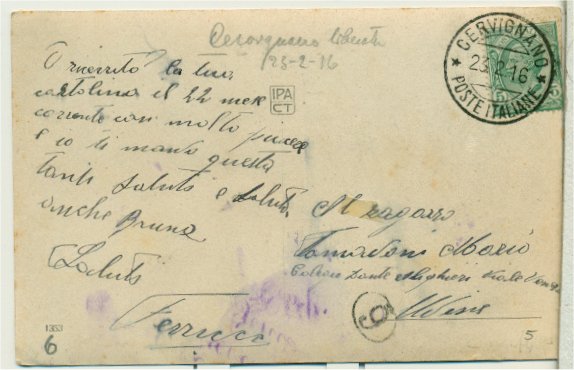 Cervignano liberata
23-2-16
CERVIGNANO
23.2.16
POSTE ITALIANE
IPA
CT
O ricevuto la tua
cartolina il 22 mese
corrente con molto piacere
e io ti mando questa
tanti saluti e saluta
anche Bruna
Saluti
Ferrucci
Al ragazzo
Tomadoni Mario
Dante Alighieri Viale
Udine
6
1353
6
5